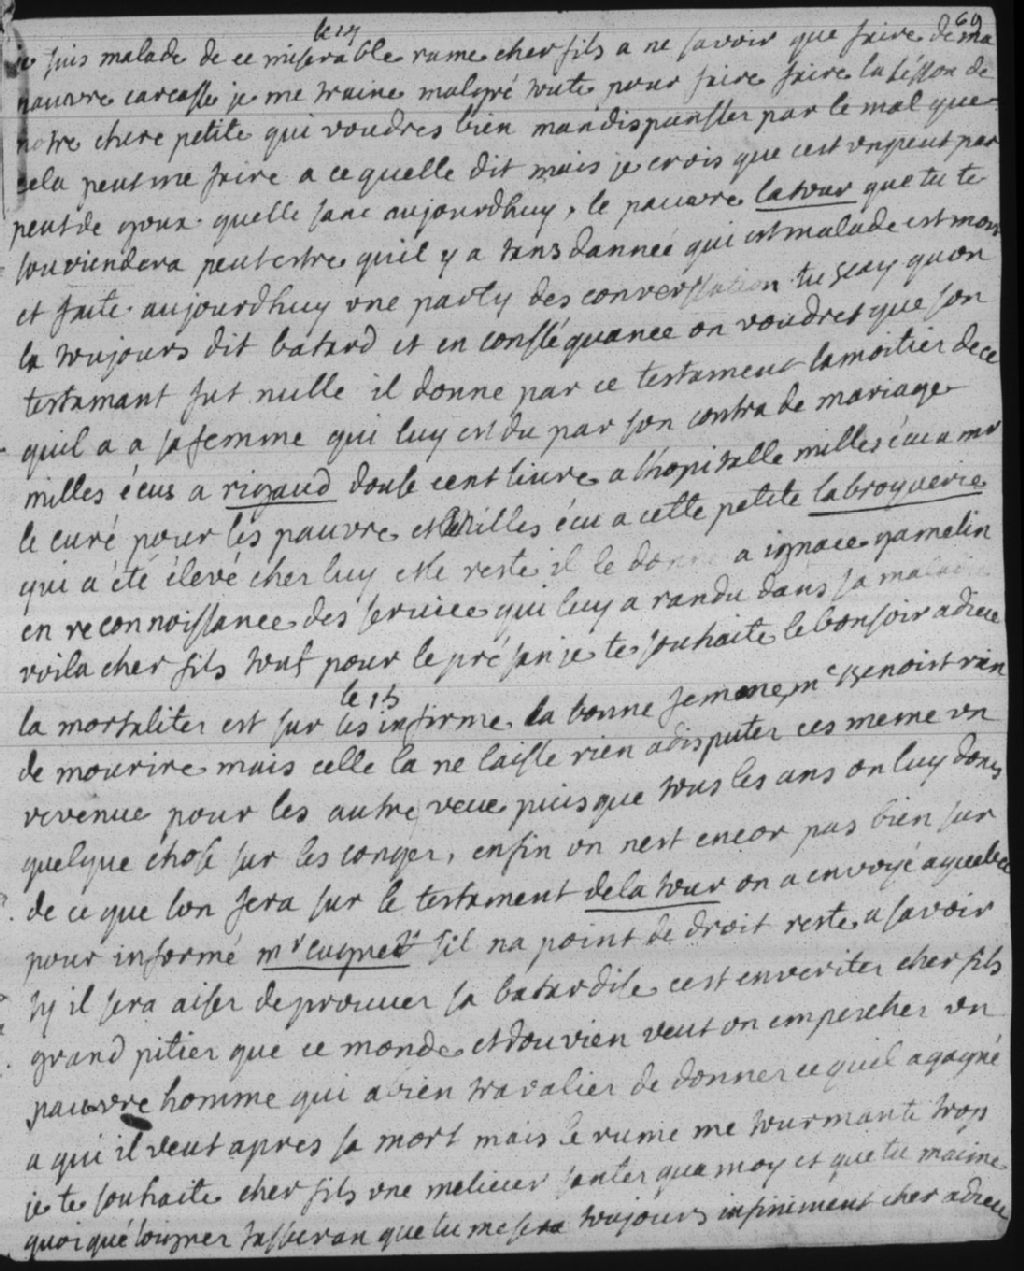 69
le 14
je suis malade de ce miserable rume cher fils a ne savoir que faire de ma
pauvre carcasse je me traine malgré toute pour faire faire la lésson de
notre chere petite qui voudres bien mandispansser par le mal que
cela peut me faire a ce quelle dit mais je crois que cest un peut par
peut de goux quelle sane aujourdhuy, le pauvre latour que tu te
souviendera peutestre quil y a tans danneé qui est malade est mort
et faite aujourdhuy une party des converssation tu scay quon
la toujours dit batard et en conssléquance on voudret que son
testamant fut nulle il donne par ce testament la moitier de ce
quil a a sa femme qui luy est du par son contra de mariage
milles écus a rigaud douse cent livre a lhopitalle milles écu a mr
le curé pour les pauvre et milles écu a cette petite labroquerie
qui a été élevé cher luy et le reste il le donne a ignace gamelin
en reconnoissance des service qui luy a randu dans sa maladie
voila cher fils tout pour le présan je te souhaite le bonsoir adieu
le 15
la mortaliter est sur les infirme la bonne femme mc Benoist vien
de mourire mais celle la ne laisse rien a disputer ces meme un
revenue pour les autre veue puisque tous les ans on luy donet
quelque chose sur les conger, enfin on nest encor pas bien sur
de ce que lon fera sur le testament de la tour on a envoyé a quebec
pour informé mr cugnet sil na point de droit reste a savoir
sy il sera aiser de prouver sa batardise cest en veriter cher fils
grand pitier que ce monde et dou vien veut on empescher un
pauvre homme qui a bien travalier de donner ce quil a gagné
a qui il veut apres sa mort mais le rume me tourmante trop
je te souhaite cher fils une melieur santer que moy et que tu maime
quoi qué loigner tasseran que tu me sera toujours infiniment cher adieu